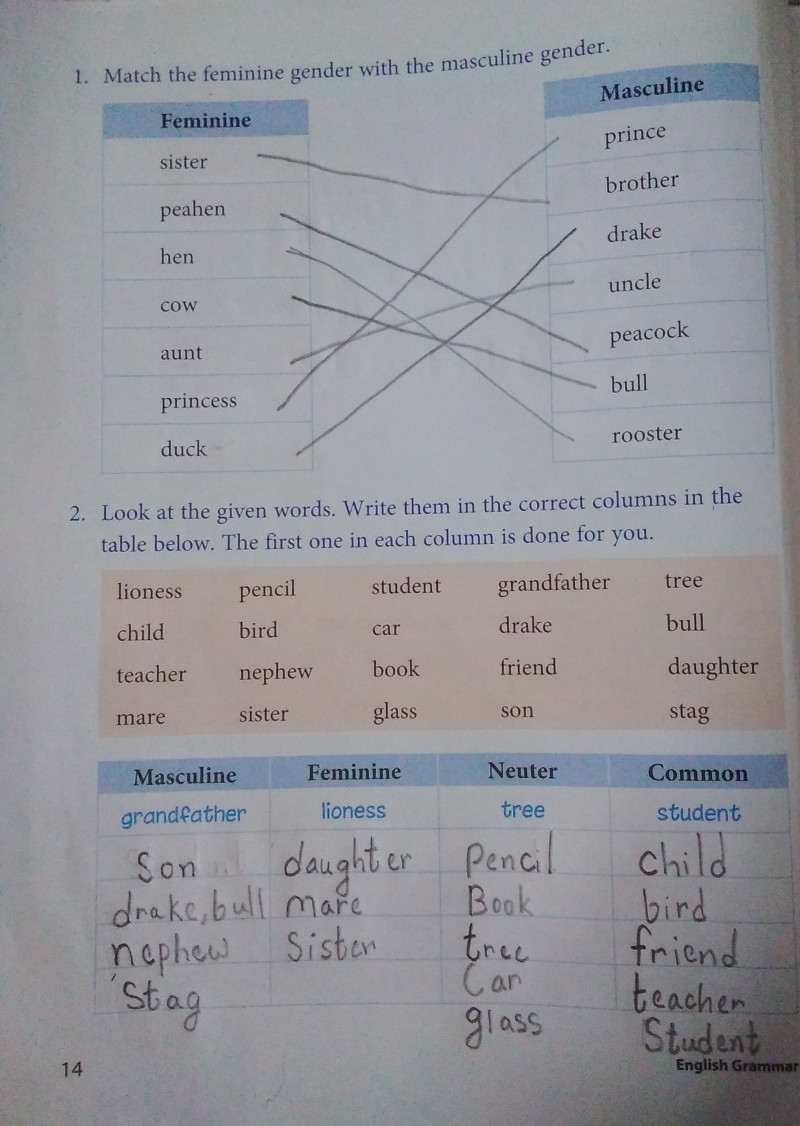 1. Match the feminine gender with the masculine gender.
Feminine
sister
peahen
hen
cow
aunt
princess
duck
Masculine
prince
brother
drake
uncle
peacock
bull
rooster
2. Look at the given words. Write them in the correct columns in the
table below. The first one in each column is done for you.
lioness pencil student grandfather tree
child bird car drake bull
teacher nephew book friend daughter
mare sister glass son stag
Masculine Feminine Neuter Common
grandfather lioness tree student
Son daughter Pencil child
drake, bull mare Book bird
nephew Sister tree friend
Stag Car teacher
glass Student
14 English Grammar